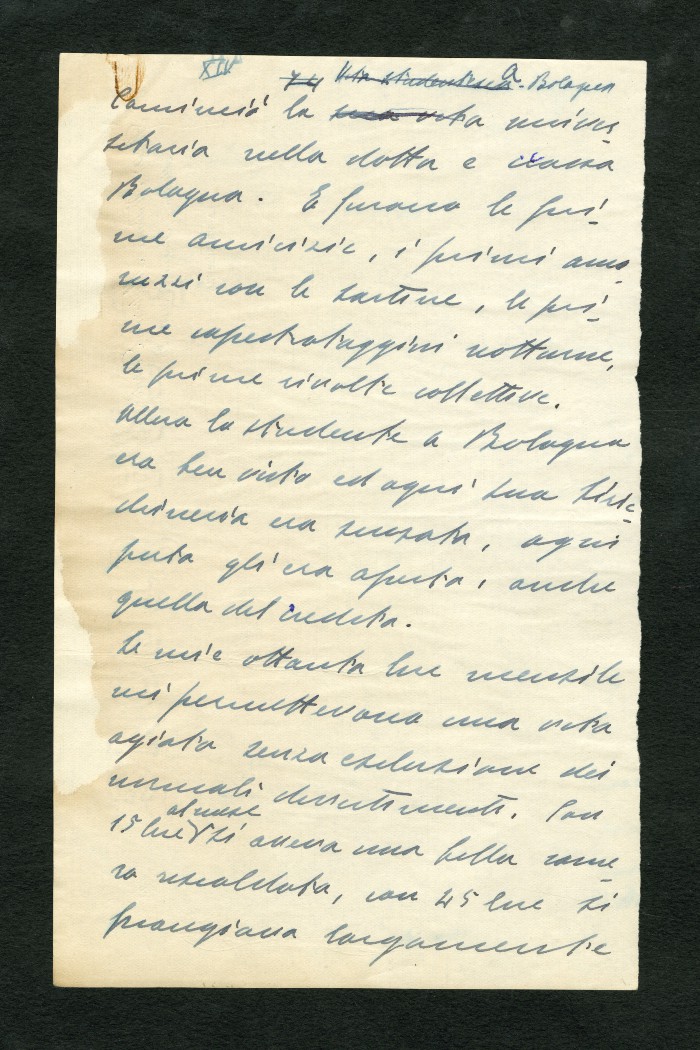 XIV
74 Vita studentesca a Bologna
Cominciò la sua vita univer
sitaria nella dotta e grassa
Bologna. E furono le pri-
me amicizie, i primi amo-
razzi con le sartine, le pri-
me capestrataggini notturne,
le prime rivolte collettive.
Allora lo studente a Bologna
era ben visto ed ogni sua biric-
chineria era scusata, ogni
porta gli era aperta, anche
quella del credito.
Le mie ottanta lire mensile
mi permettevano una vita
agiata senza esclusione dei
normali divertimenti. Con
15 lire al mese si aveva una bella came
ra riscaldata, con 45 lire si
mangiava largamente